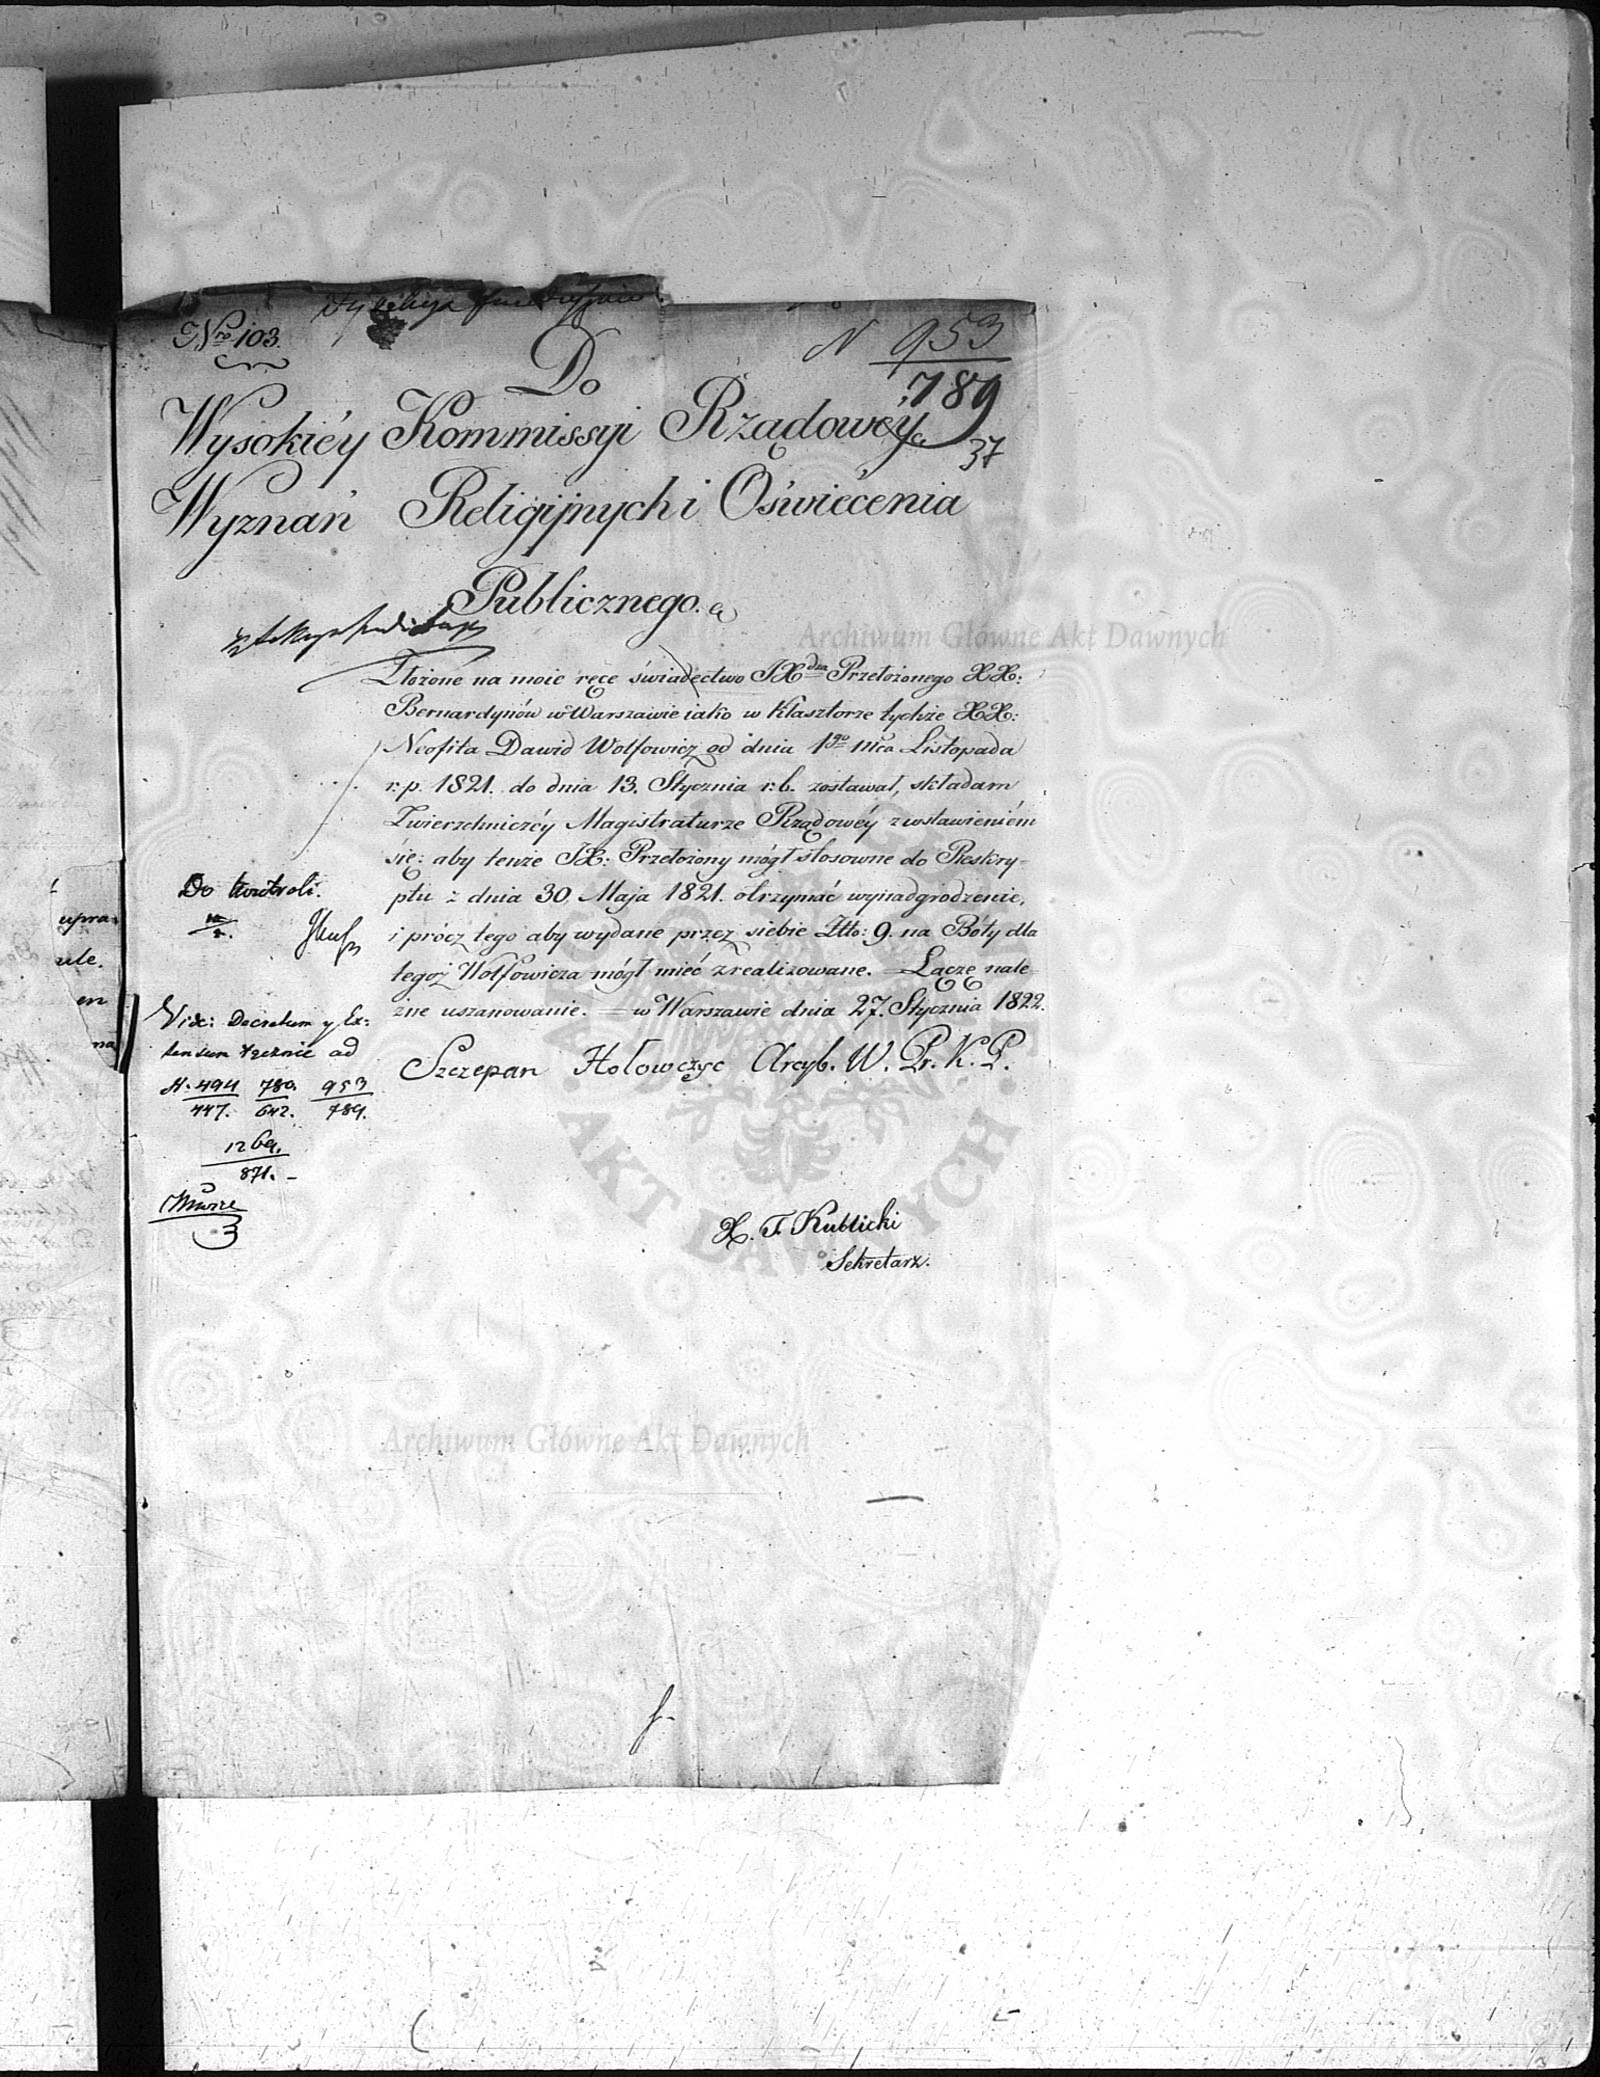 Nro 103.
N 953
789
37
Do
Wysokiéy Kommissyi Rządowéy
Wyznań Religijnych i Oświécenia
Publicznego.
Złożone na moie ręce świadectwo JXdza Przełożonego XX:
Bernardynów w Warszawie iako w Klasztorze tychże XX:
Neofita Dawid Wolfowicz od dnia 1go mca Listopada
r: p. 1821. do dnia 13. Stycznia r: b. zostawał, składam
Zwierzchniczéy Magistraturze Rządowéy z wstawieniém
się: aby tenże JX: Przełożony mógł stosowne do Reskry-
ptu z dnia 30 Maja 1821. otrzymać wynadgrodzenie,
i prócz tego aby wydane przez siebie Złto: 9. na Bóty dla
tegoż Wolfowicza mógł mieć zrealizowane. — Łączę nale-
żne uszanowanie. — w Warszawie dnia 27. Stycznia 1822.
Szczepan Hołowczyc Arcyb. W. Pr. K. P.
X. F. Kublicki
Sekretarz.
Do Kontroli.
Vide: Decretum y Ex-
tensum ad
N. 494 780. 953
447. 642. 789.
1269.
871. -
upra-
ule.
em
na
Archiwum Główne Akt Dawnych
Archiwum Główne Akt Dawnych
AKT DAWNYCH